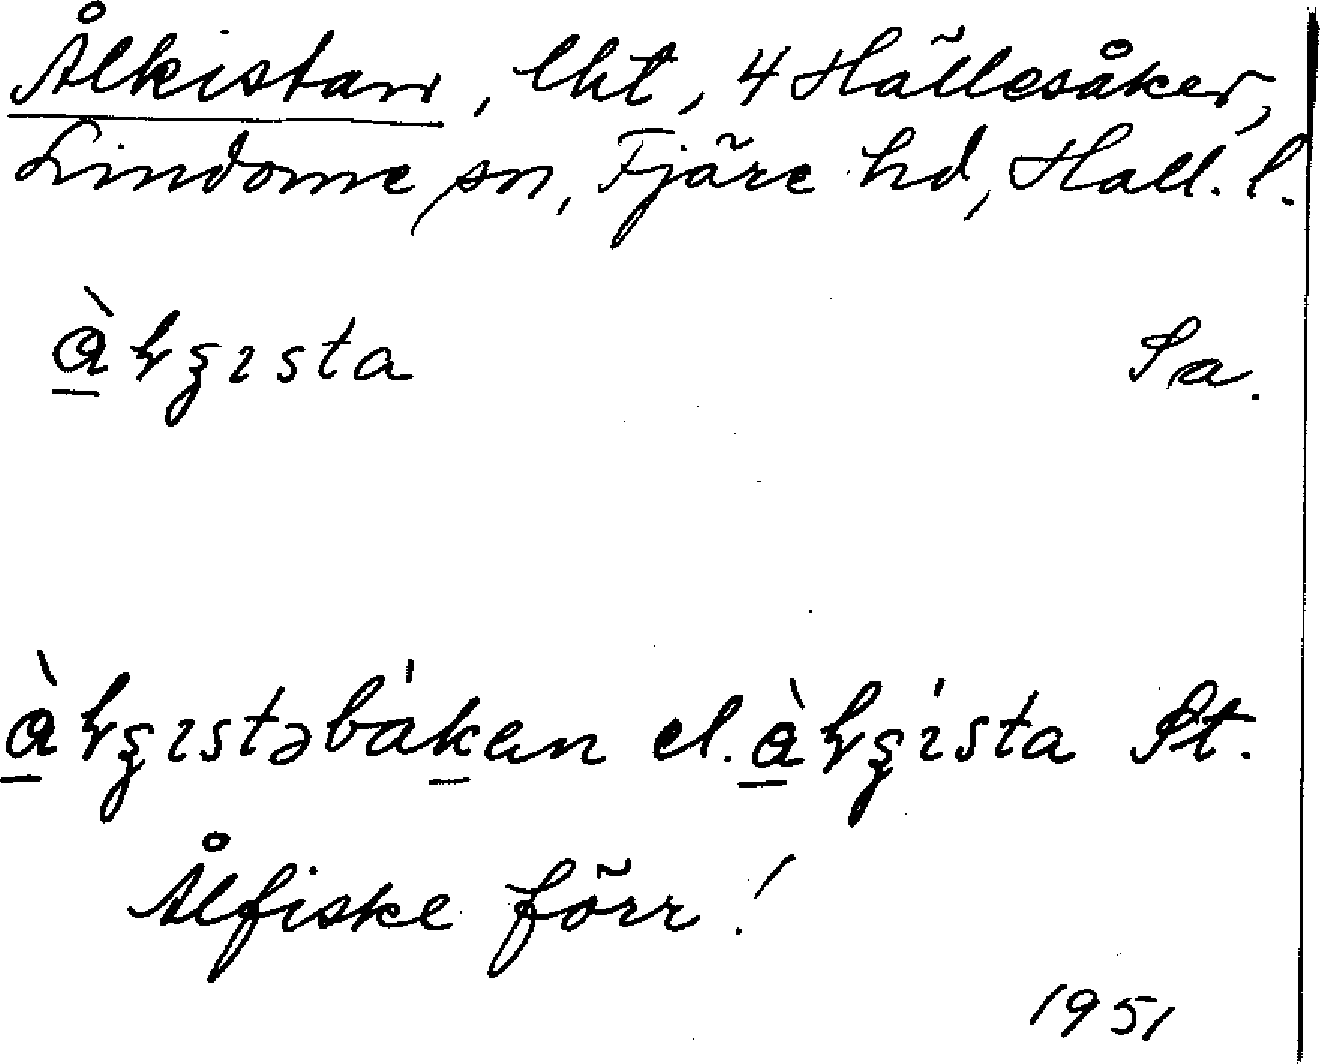 Ålkistan, lht, 4 Hällesåker,
Lindome sn, Fjäre hd, Hall. l.
à̱ƚʂɪsta Sa.
à̱ƚʂɪstəbákan el. à̱ƚʂɪ́sta St.
Ålfiske förr!
1951